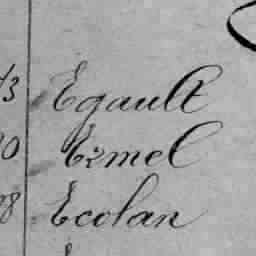 Egault
Ermel
Ecolan